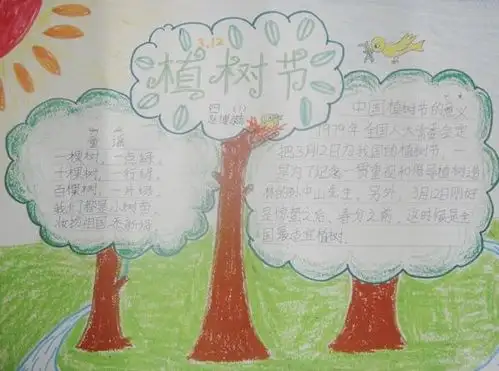 3.12
植树节
四（1）
童谣
一棵树，一点绿，
十棵树，一行绿，
百棵树，一片绿，
我们都是小树苗，
妆扮祖国
中国植树节的意义
1979年全国人大常委会定
把3月12日为我国的植树节，一
是为了纪念一贯重视和倡导植树造
林的孙中山先生。另外，3月12日刚好
是惊蛰之后、春分之前，这时候是全
国最适宜植树.